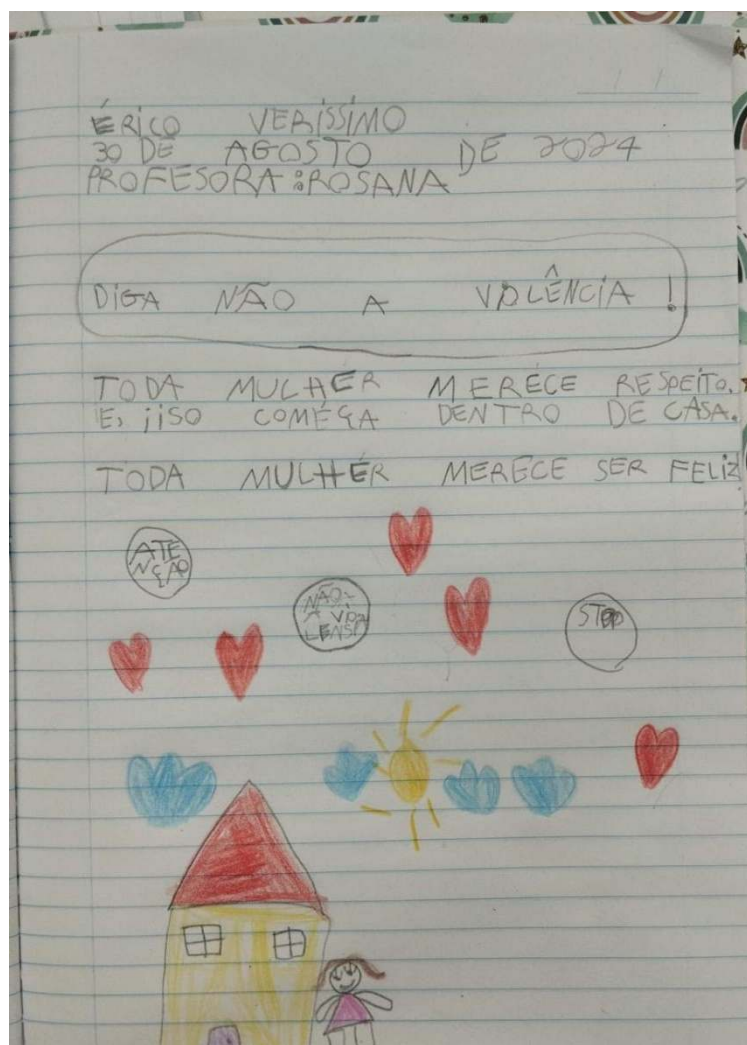 ÉRICO VERÍSSIMO
30 DE AGOSTO DE 2024
PROFESORA:ROSANA
DIGA NÃO A VIOLÊNCIA!
TODA MULHÉR MERÉCE RESPEITO.
E, iiSO COMÉÇA DENTRO DE CASA.
TODA MULHÉR MERECE SER FELIZ
ATE
NÇÃO
NÃO-
A VIO
LENSA
STOP